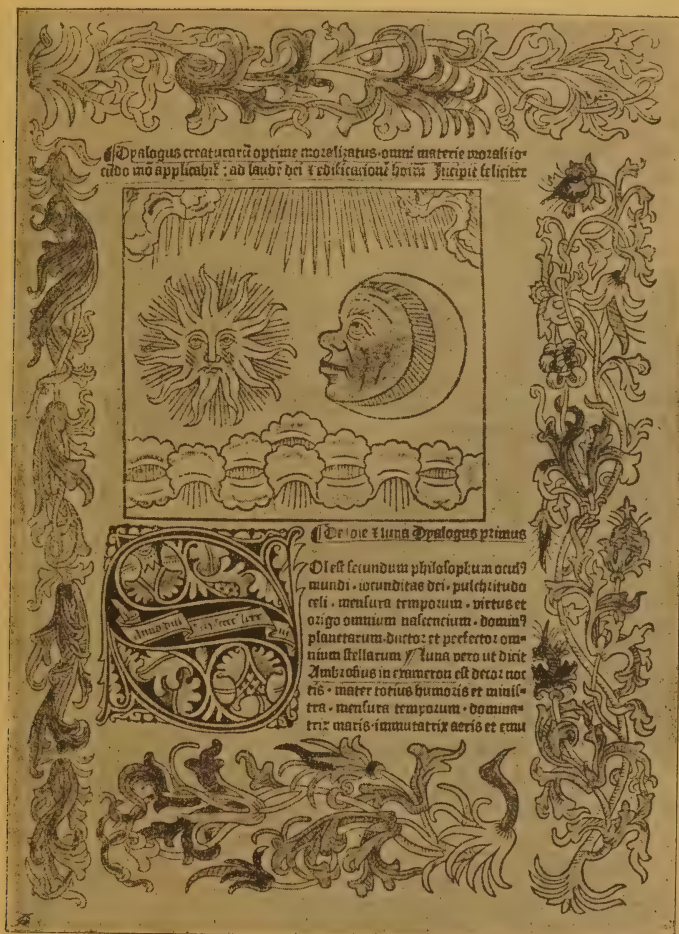 ¶Dyalogus creaturarū optime moralizatus·omni materie morali io-
cūdo mō applicabil’: ad laudē dei ⁊ edificacionē hoim̄ Incipit feliciter
¶De sole ⁊ luna Dyalogus primus
Ol est secundum philosophum oculꝰ
mundi·iocunditas dei·pulchritudo
celi·mensura temporum·virtus et
origo omnium nascencium·dominꝰ
planetarum·ductor et perfector om-
nium stellarum luna vero ut dicit
Ambrosius in exameron est decor noc
tis·mater totius humoris et minis-
tra·mensura temporum·domina-
trix maris·immutatrix aeris et emu
anno dni